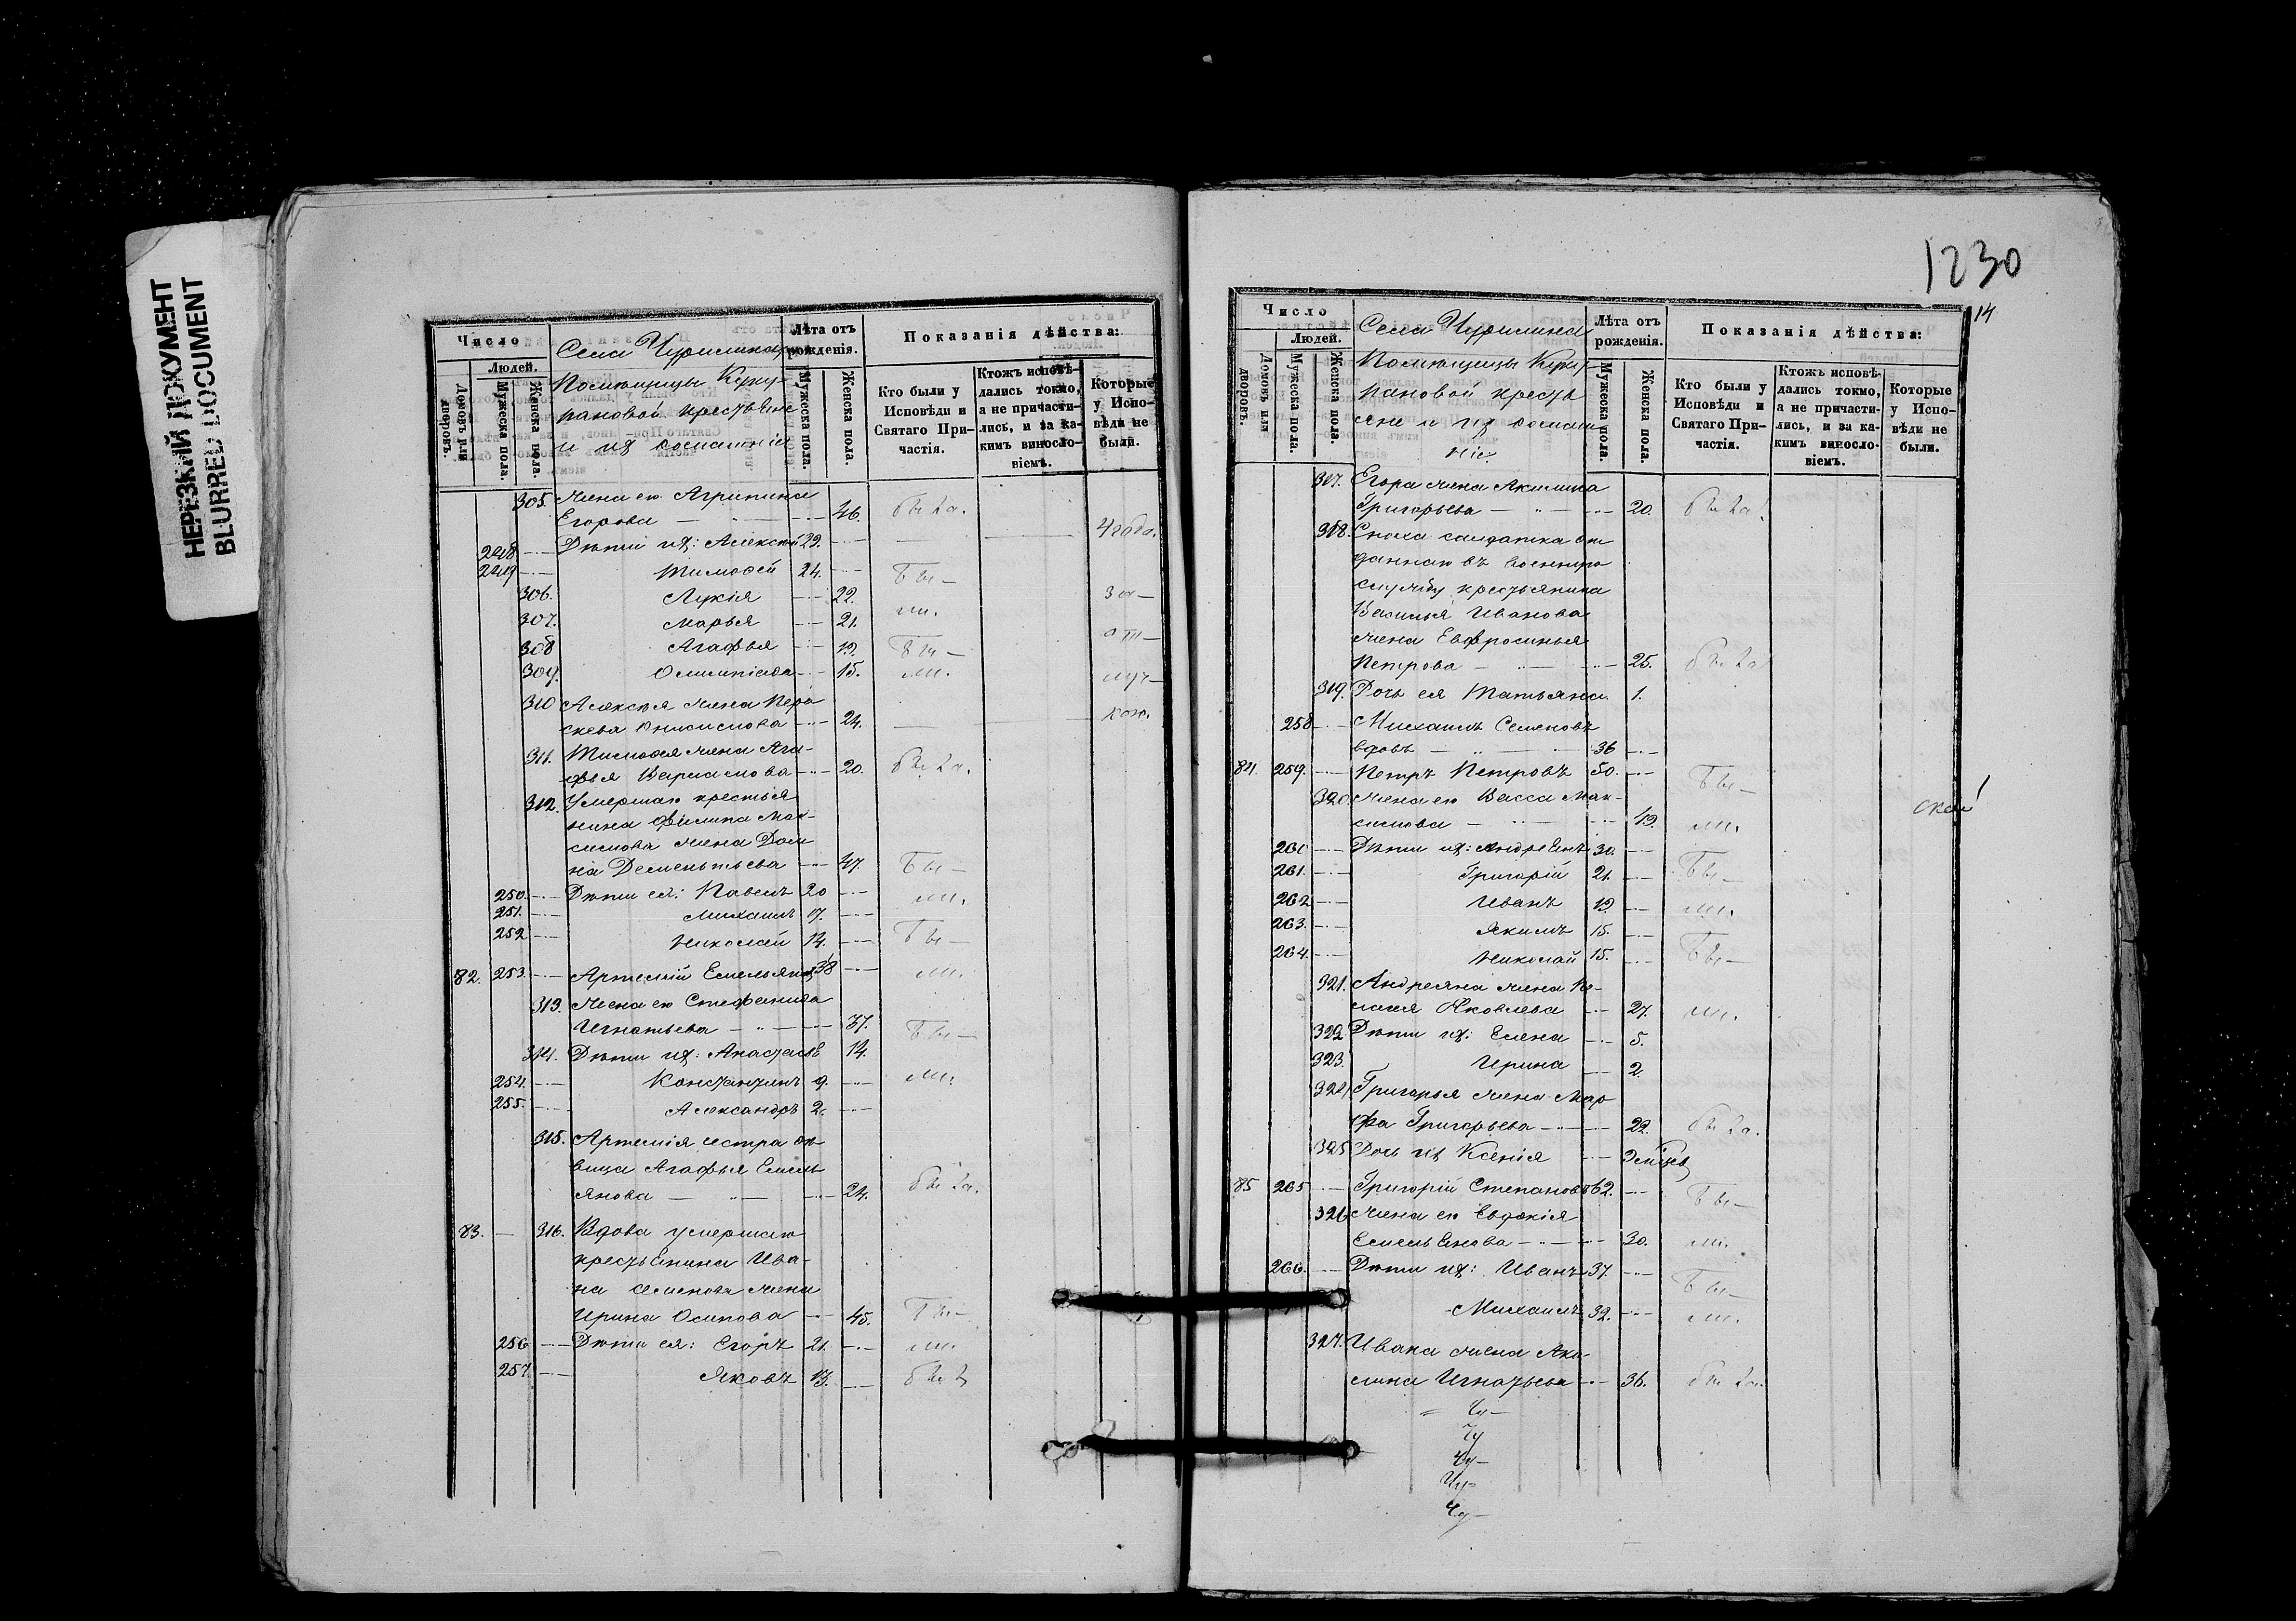 НЕРЕЗКИЙ ДОКУМЕНТ
BLURRED DOCUMENT
Число
Людей.
Домовъ или дворовъ.
Мужеска пола.
Женска пола.
Села
Помѣщицы
пановой крестьяне
и их домашніе
Лѣта отъ рожденія.
Мужеска пола.
Женска пола.
Показанія дѣйства:
Кто были у Исповѣди и Святаго Причастія.
Ктожъ исповѣдались токмо, а не причастились, и за какимъ винословіемъ.
Которые у Исповѣди не были.
305. Жена его Агрипина
Егорова — 46. была.
248 Дѣти их: Алексѣй 29. 4 года.
249 Тимофей 24. Бы—
306. Лукія 22. ли. за—
307. Марья 21.
308 Агафья 19. Бы— от—
309. Олимпіада 15. ли. луч—
310 Алексѣя жена Пара
скева Онисимова 24. кою.
311. Тимофея жена Ага-
фья Варламова 20. была.
312. Умершаго крестья
нина Филипа Мак-
симова жена Дом
на Дементьева 47. Бы—
250. Дѣти ея: Павелъ 20 ли.
251. Михаилъ 17.
252 Николай 14. Бы—
82. 253. Артемій Емельяновъ 38 ли.
313. Жена его Стефанида
Игнатьева 37. Бы—
314. Дѣти их: Анастасія 14.
254. Константинъ 9. ли.
255. Александръ 2.
315. Артемія сестра дѣ
вица Агафья Емель
янова 24. была.
83. 316. Вдова умершаго
крестьянина Ива-
на Семенова жена
Ирина Осипова 45. Бы—
256 Дѣти ея: Егоръ 21. ли.
257. Яковъ былъ
1230
14
Число
Людей.
Домовъ или дворовъ.
Мужеска пола.
Женска пола.
Села
Помѣщицы
пановой кресть
яне и их домаш
ніе.
Лѣта отъ рожденія.
Мужеска пола.
Женска пола.
Показанія дѣйства:
Кто были у Исповѣди и Святаго Причастія.
Ктожъ исповѣдались токмо, а не причастились, и за какимъ винословіемъ.
Которые у Исповѣди не были.
317. Егора жена Акилина
Григорьева 20. была
318. Сноха солдатка от
даннаго въ военную
службу крестьянина
Василья Иванова
жена Евфросинья
Петрова 25. была
319. Дочь ея Татьяна 1.
258 Михаилъ Семеновъ
вдовъ 36
84. 259. Петръ Петровъ 50. Бы—
320. Жена его Васса Мак-
симова 49. ли.
260 Дѣти их: Андреянъ 30.
261. Григорій 21. Бы—
262 Иванъ 19. ли.
263. Якимъ 15.
264. Николай 15. Бы—
321. Андреяна жена Пе-
лагея Яковлева 27. ли.
322 Дѣти их: Елена 5.
323. Ирина 2.
324 Григорья жена Мар
фа Григорьева 22. была.
325 Дочь их Ксенія
85 265 Григорій Степановъ 62. Бы—
326 Жена его Евдокія
Емельянова 30. ли.
266. Дѣти их: Иванъ 37. Бы—
Михаилъ 32. ли.
327. Ивана жена Аки-
лина Игнатьева 36. была.